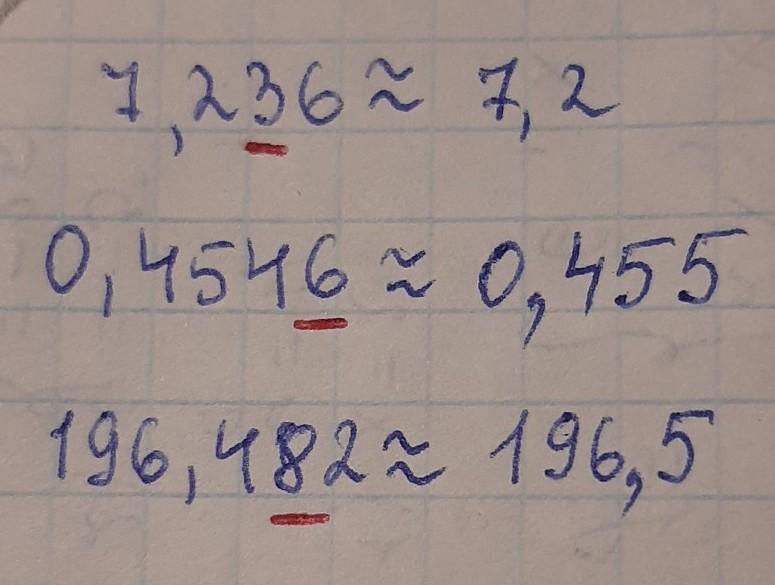 7,236 ≈ 7,2
0,4546 ≈ 0,455
196,482 ≈ 196,5